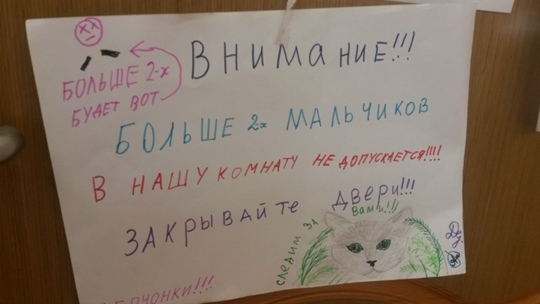 ВНИМАНИЕ!!!
БОЛЬШЕ 2-х
БУДЕТ ВОТ
БОЛЬШЕ 2х МАЛЬЧИКОВ
В НАШУ КОМНАТУ НЕ ДОПУСКАЕТСЯ!!!!
ЗАКРЫВАЙТЕ ДВЕРИ!!!
СЛЕДИМ ЗА
ВАМИ!!!